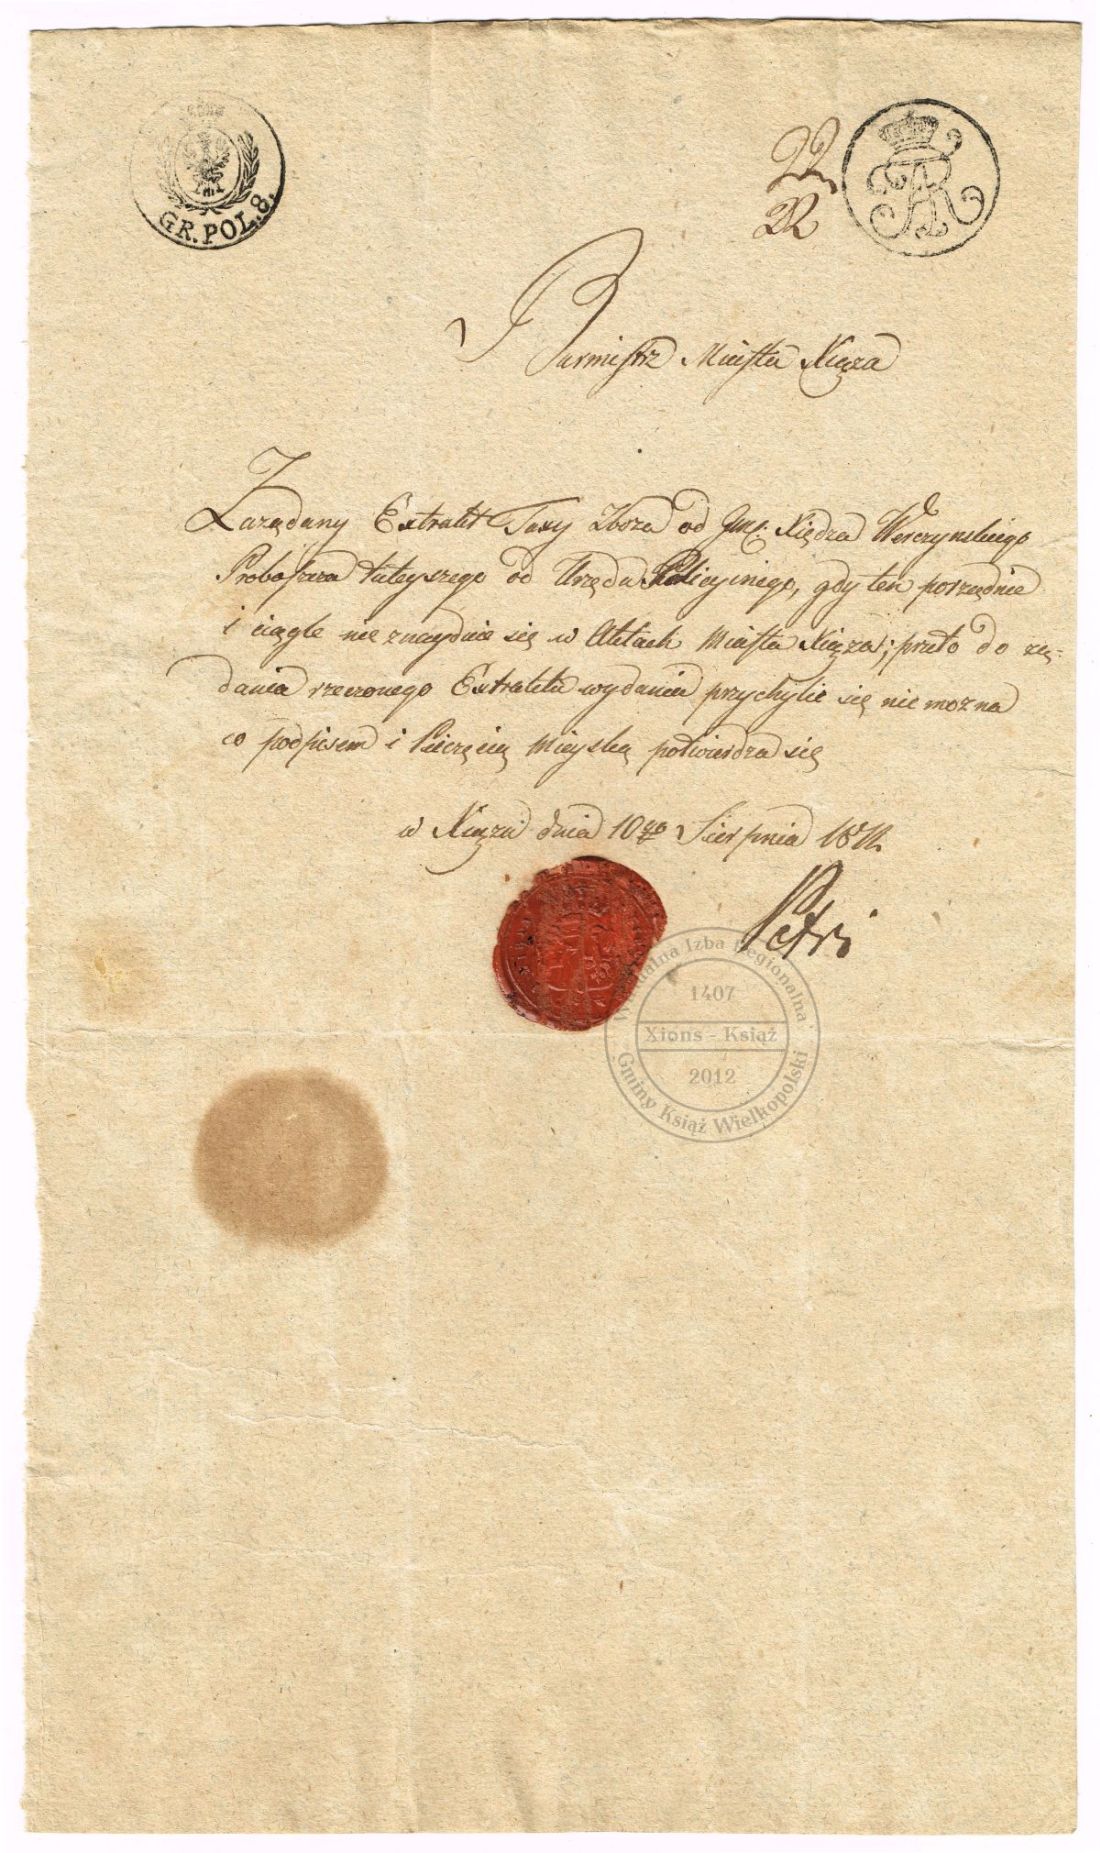 GR. POL. 8.
22
22
FR
Burmistrz Miasta Xiąza
Zarządany Extrakt Taxy Zboza od Jmę. Xiędza Werczynskiego
Proboszcza tuteyszego od Urzędu Policyinego, gdy ten porzędnie
i ciągle nie znayduie się w Aktach Miasta Xiąza; przeto do rzą-
dania rzeczonego Extraktu wydania przychylic się nie mozna
co podpisem i Pieczęcią Mieyską potwierdza się
w Xiązu dnia 10go Sierpnia 18
Petri
Wirtualna Izba Regionalna
1407
Xions - Książ
2012
Gminy Książ Wielkopolski